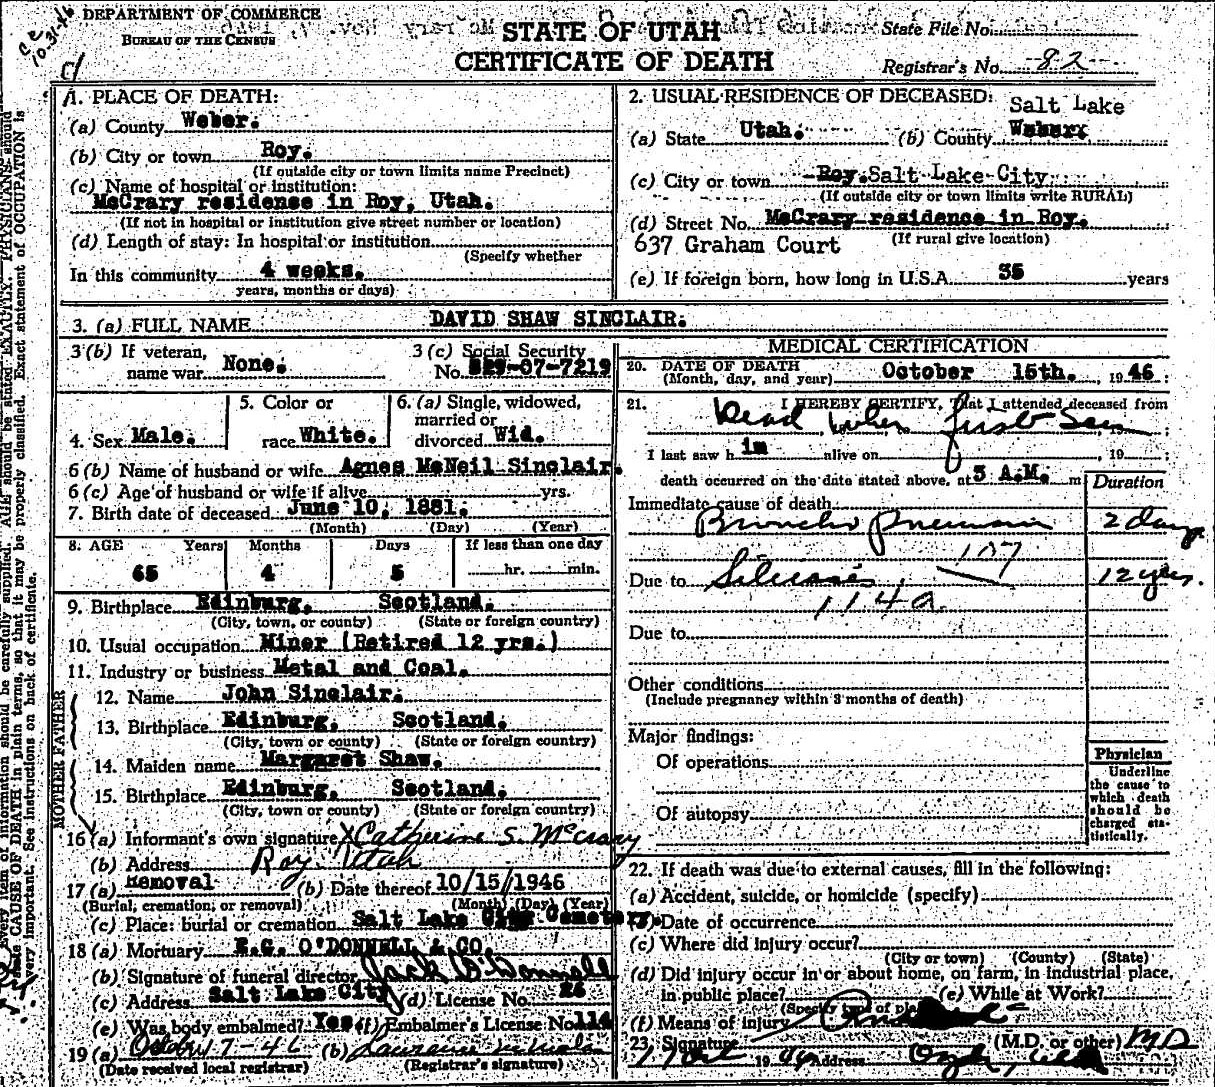 c e
10.31.46
DEPARTMENT OF COMMERCE
BUREAU OF THE CENSUS
STATE OF UTAH
CERTIFICATE OF DEATH
State File No.
Registrar's No. 82
1. PLACE OF DEATH:
(a) County Weber.
(b) City or town Roy.
(If outside city or town limits name Precinct)
(c) Name of hospital or institution:
McCrary residense in Roy, Utah.
(If not in hospital or institution give street number or location)
(d) Length of stay: In hospital or institution
(Specify whether
In this community 4 weeks.
years, months or days)
2. USUAL RESIDENCE OF DECEASED:
Salt Lake
(a) State Utah. (b) County Weber.
(c) City or town Roy. Salt Lake City
(If outside city or town limits write RURAL)
(d) Street No. McCrary residense in Roy.
637 Graham Court (If rural give location)
(e) If foreign born, how long in U.S.A. 35 years
3. (a) FULL NAME DAVID SHAW SINCLAIR.
3 (b) If veteran,
name war None.
3 (c) Social Security
No. 529-07-7219
4. Sex Male.
5. Color or
race White.
6. (a) Single, widowed,
married or
divorced Wid.
6 (b) Name of husband or wife Agnes McNeil Sinclair.
6 (c) Age of husband or wife if alive yrs.
7. Birth date of deceased June 10, 1881.
(Month) (Day) (Year)
8. AGE Years Months Days If less than one day
65 4 5 hr. min.
9. Birthplace Edinburg, Scotland.
(City, town, or county) (State or foreign country)
10. Usual occupation Miner (Retired 12 yrs.)
11. Industry or business Metal and Coal.
FATHER
12. Name John Sinclair.
13. Birthplace Edinburg, Scotland.
(City, town or county) (State or foreign country)
MOTHER
14. Maiden name Margaret Shaw.
15. Birthplace Edinburg, Scotland.
(City, town or county) (State or foreign country)
16 (a) Informant's own signature X Catherine S. McCrary
(b) Address Roy Utah
17 (a) Removal (b) Date thereof 10/15/1946
(Burial, cremation, or removal) (Month) (Day) (Year)
(c) Place: burial or cremation Salt Lake City Cemetery.
18 (a) Mortuary E.G. O'DONNELL & CO.
(b) Signature of funeral director Jack O'Donnell
(c) Address Salt Lake City (d) License No. 26
(e) Was body embalmed? Yes (f) Embalmer's License No. 114
19 (a) Octobr 17-46 (b)
(Date received local registrar) (Registrar's signature)
MEDICAL CERTIFICATION
20. DATE OF DEATH
(Month, day, and year) October 15th. , 1946 ;
21. I HEREBY CERTIFY, That I attended deceased from
Dead when first seen , 19 ;
I last saw h im alive on , 19 ;
death occurred on the date stated above, at 5 A.M. m
Duration
Immediate cause of death
Broncho Pneumonia 2 days
107
Due to Silicosis 12 yrs.
114a
Due to
Other conditions
(Include pregnancy within 3 months of death)
Major findings:
Of operations
Of autopsy
Physician
Underline
the cause to
which death
should be
charged sta-
tistically.
22. If death was due to external causes, fill in the following:
(a) Accident, suicide, or homicide (specify)
(b) Date of occurrence
(c) Where did injury occur?
(City or town) (County) (State)
(d) Did injury occur in or about home, on farm, in industrial place,
in public place? (e) While at Work?
(Specify type of place)
(f) Means of injury
23. Signature (M.D. or other) M D
17 Oct 1946 Address
Every item of information should be carefully supplied. AGE should be stated EXACTLY. PHYSICIANS should
state CAUSE OF DEATH in plain terms, so that it may be properly classified. Exact statement of OCCUPATION is
very important. See instructions on back of certificate.